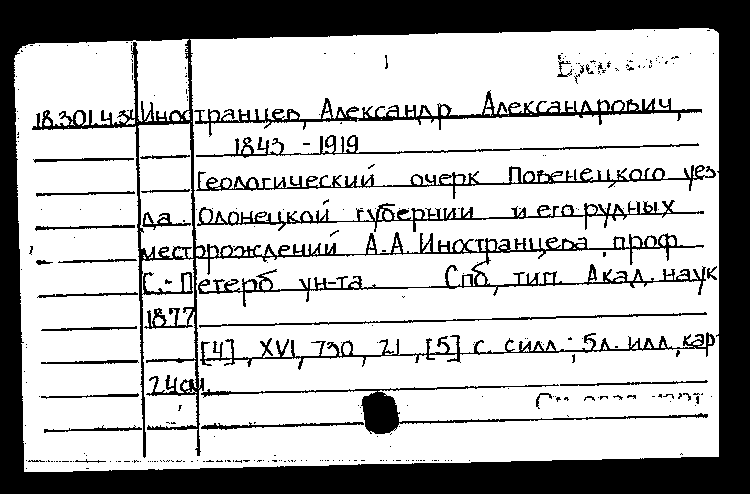 18.301.4.34 Иностранцев, Александр Александрович,
1843 - 1919
Геологический очерк Повенецкого уез-
да Олонецкой губернии и его рудных
месторождений А.А. Иностранцева, проф.
С.-Петерб ун-та. Спб, тип. Акад. наук
1877
[4], XVI, 730, 21, [5] с. с илл.; 5л. илл, кар
24см.